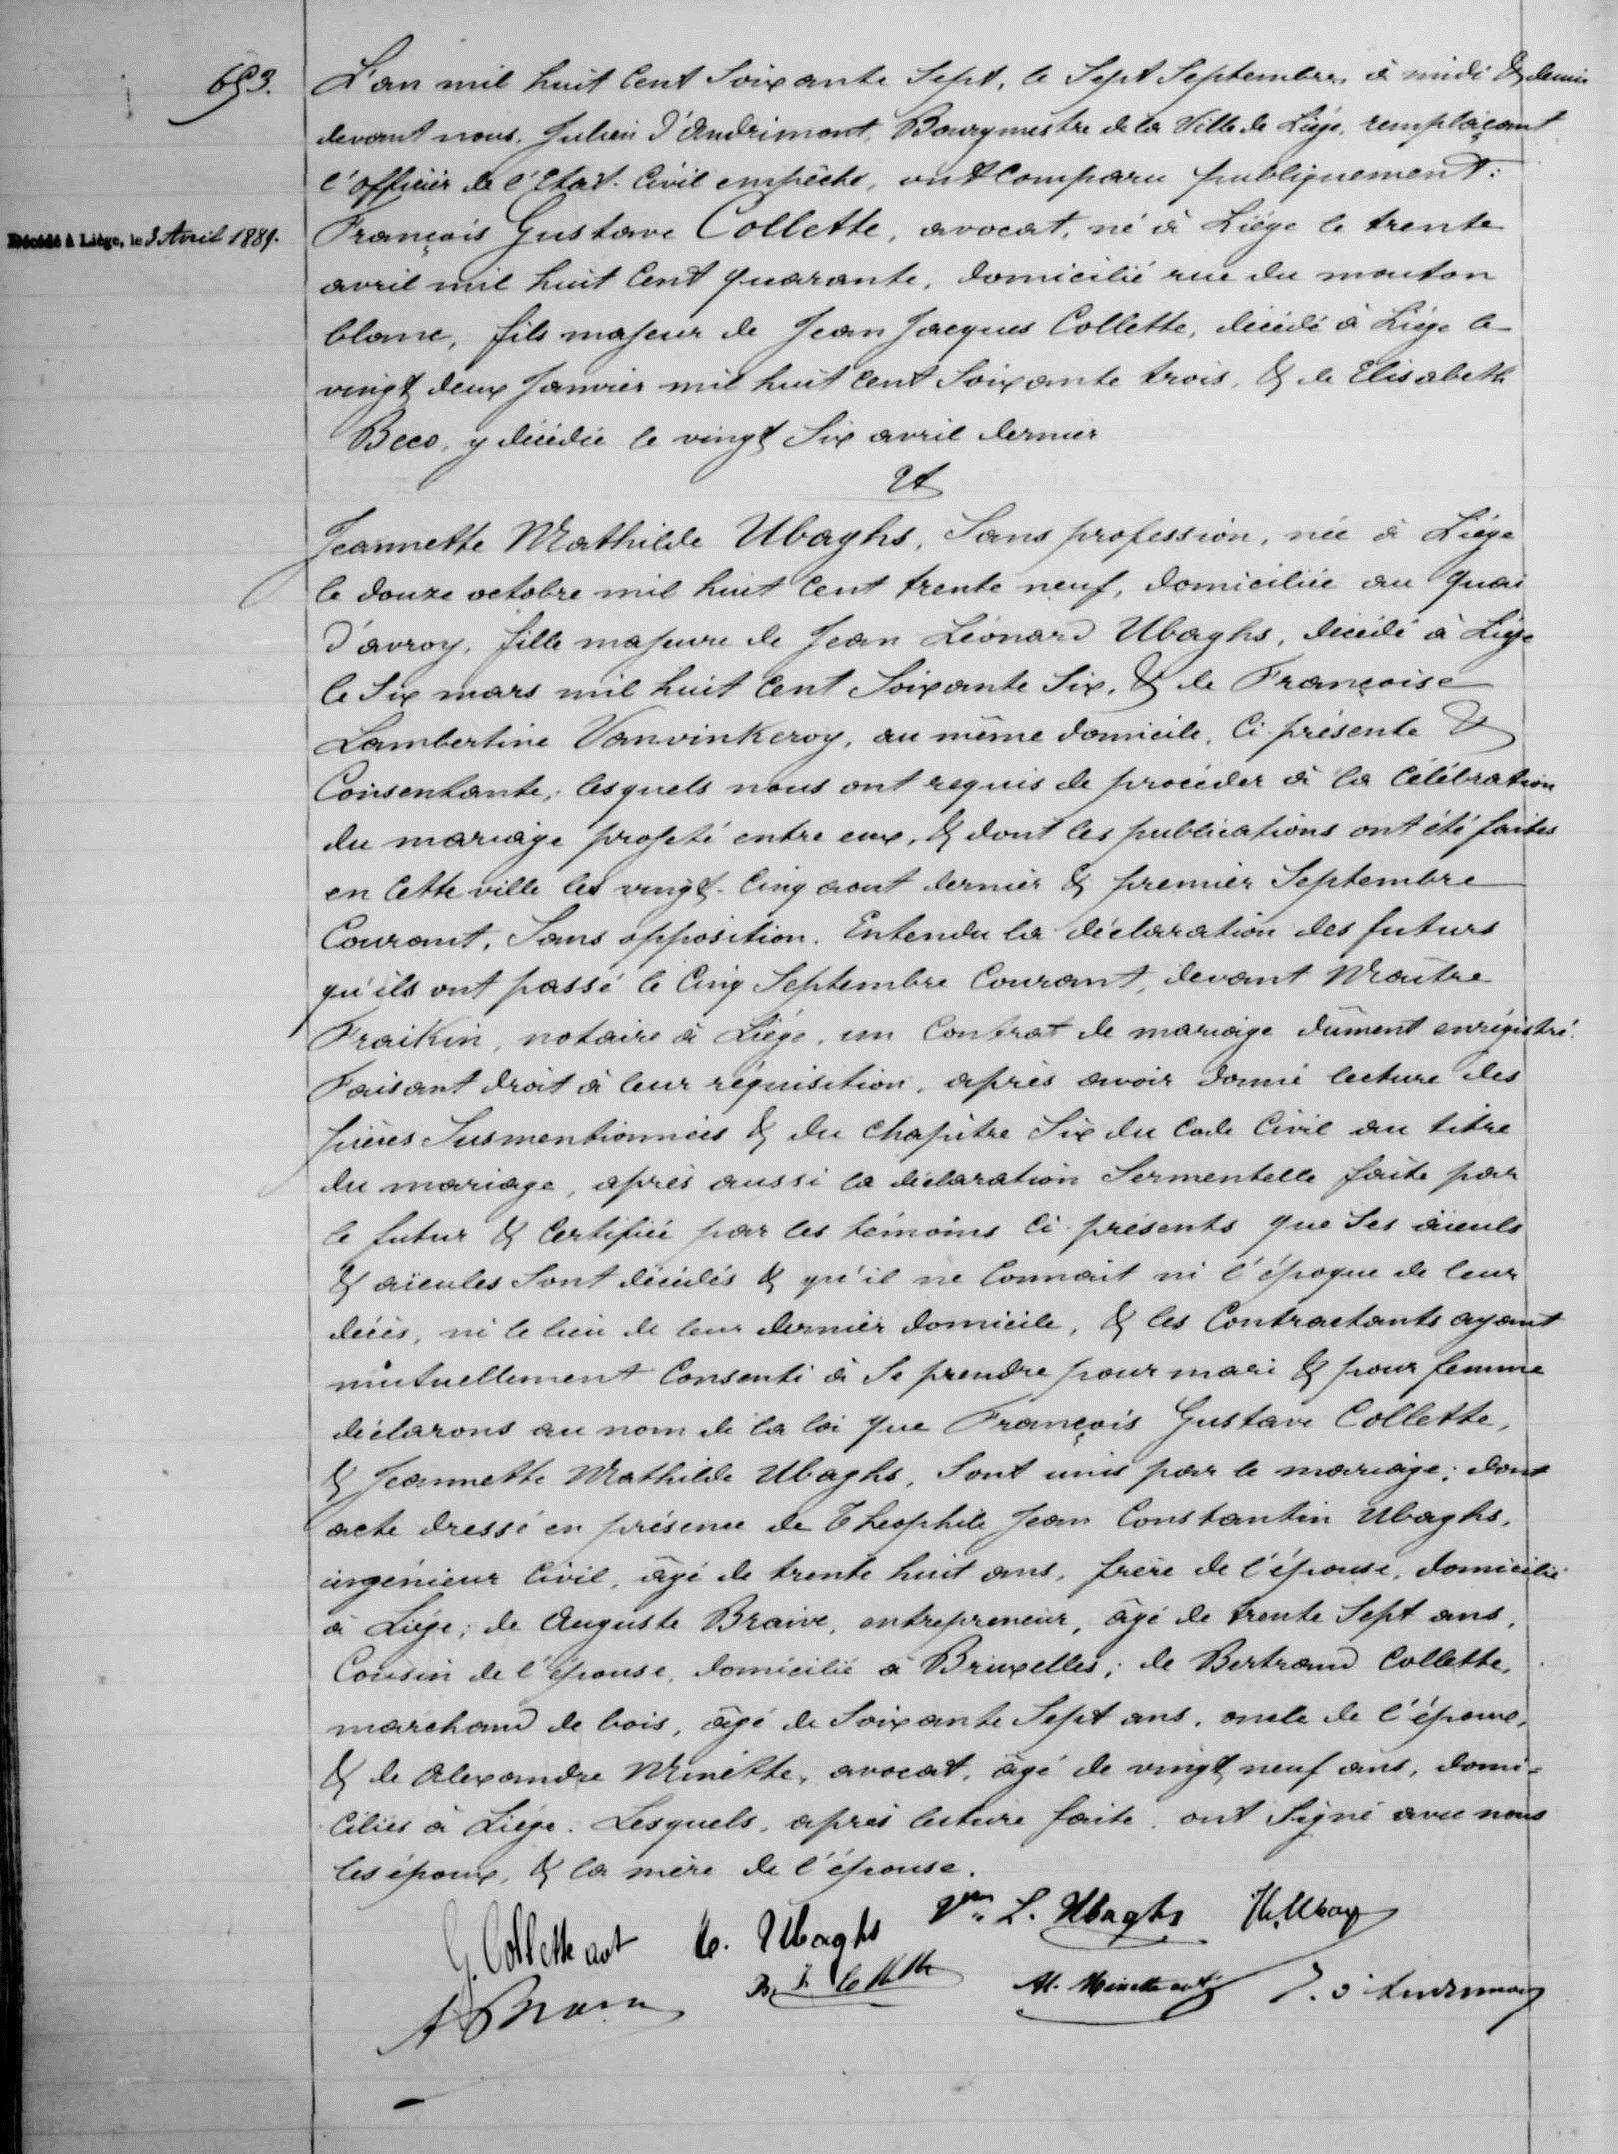 653.
L'an mil huit Cent Soixante Sept, le Sept Septembre, à midi & demie
devant nous, Julien d'Andrimont, Bourgmestre de la Ville de Liége, remplaçant
l'officier de l'Etat-Civil empêché, ont Comparu publiquement:
Décédé à Liége, le 3 Avril 1889.
François Gustave Collette, avocat, né à Liége le trente
avril mil huit Cent quarante, domicilié rue du mouton
blanc, fils majeur de Jean Jacques Collette, décédé à Liége le
vingt deux Janvier mil huit Cent Soixante trois, & de Elisabeth
Beco, y décédée le vingt Six avril dernier
Et
Jeannette Mathilde Ubaghs, Sans profession, née à Liége
le douze octobre mil huit Cent trente neuf, domiciliée au quai
d'avroy, fille majeure de Jean Léonard Ubaghs, décédé à Liége
le Six mars mil huit Cent Soixante Six, & de Françoise
Lambertine Vanvinkeroy, au même domicile, Ci-présente &
Consentante; lesquels nous ont requis de procéder à la Célébration
du mariage projeté entre eux, & dont les publications ont été faites
en Cette ville les vingt-Cinq aout dernier & premier Septembre
Courant, Sans opposition. Entendu la déclaration des futurs
qu'ils ont passé le Cinq Septembre Courant, devant Maître
Fraikin, notaire à Liége, un Contrat de mariage dûment enrégistré.
Faisant droit à leur réquisition, après avoir donné lecture des
pièces Susmentionnées & du Chapitre Six du Code Civil au titre
du mariage, après aussi la déclaration Sermentelle faite par
le futur & Certifiée par les témoins Ci-présents que Ses aïeuls
& aïeules Sont décédés & qu'il ne Connait ni l'époque de leur
décès, ni le lieu de leur dernier domicile, & les Contractants ayant
mutuellement Consenti à Se prendre pour mari & pour femme
déclarons au nom de la loi que François Gustave Collette,
& Jeannette Mathilde Ubaghs, Sont unis par le mariage; dont
acte dressé en présence de Théophile Jean Constantin Ubaghs,
ingénieur Civil, âgé de trente huit ans, frère de l'épouse, domicilié
à Liége; de Auguste Braive, entrepreneur, âgé de trente Sept ans,
Cousin de l'épouse, domicilié à Bruxelles; de Bertrand Collette,
marchand de bois, âgé de Soixante Sept ans, oncle de l'époux,
& de Alexandre Minette, avocat, âgé de vingt neuf ans, domi-
ciliés à Liége. Lesquels, après lecture faite, ont Signé avec nous
les époux, & la mère de l'épouse.
G. Collette avt M. Ubaghs Vve L. Ubaghs Th. Ubag
A Braive B. J. Collette Al. Minette avt J. d'Andrimont